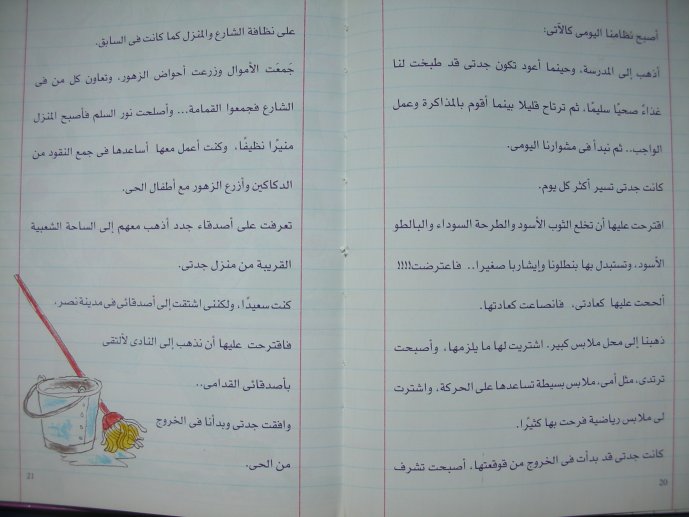 أصبح نظامنا اليومى كالآتى:
أذهب إلى المدرسة، وحينما أعود تكون جدتى قد طبخت لنا
غذاءً صحيًا سليمًا، ثم ترتاح قليلا بينما أقوم بالمذاكرة وعمل
الواجب.. ثم نبدأ فى مشوارنا اليومى.
كانت جدتى تسير أكثر كل يوم.
اقترحت عليها أن تخلع الثوب الأسود والطرحة السوداء والبالطو
الأسود، وتستبدل بها بنطلونا وإيشاربا صغيرا.. فاعترضت!!!!
ألححت عليها كعادتى. فانصاعت كعادتها.
ذهبنا إلى محل ملابس كبير. اشتريت لها ما يلزمها، وأصبحت
ترتدى، مثل أمى، ملابس بسيطة تساعدها على الحركة، واشترت
لى ملابس رياضية فرحت بها كثيرًا.
كانت جدتى قد بدأت فى الخروج من قوقعتها، أصبحت تشرف
20
على نظافة الشارع والمنزل كما كانت فى السابق.
جَمعَت الأموال وزرعت أحواض الزهور، وتعاون كل من فى
الشارع فجمعوا القمامة... وأصلحت نور السلم فأصبح المنزل
منيرًا نظيفًا، وكنت أعمل معها أساعدها فى جمع النقود من
الدكاكين وأزرع الزهور مع أطفال الحى.
تعرفت على أصدقاء جدد أذهب معهم إلى الساحة الشعبية
القريبة من منزل جدتى.
كنت سعيدًا، ولكننى اشتقت إلى أصدقائى فى مدينة نصر،
فاقترحت عليها أن نذهب إلى النادى لألتقى
بأصدقائى القدامى..
وافقت جدتى وبدأنا فى الخروج
من الحى.
21